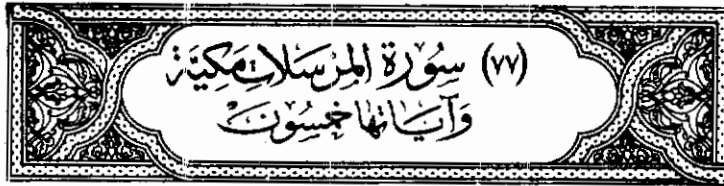 (٧٧) سُورَة المُرسَلاتِ مَكِيَّة
وَآيَانهَا خمسُون